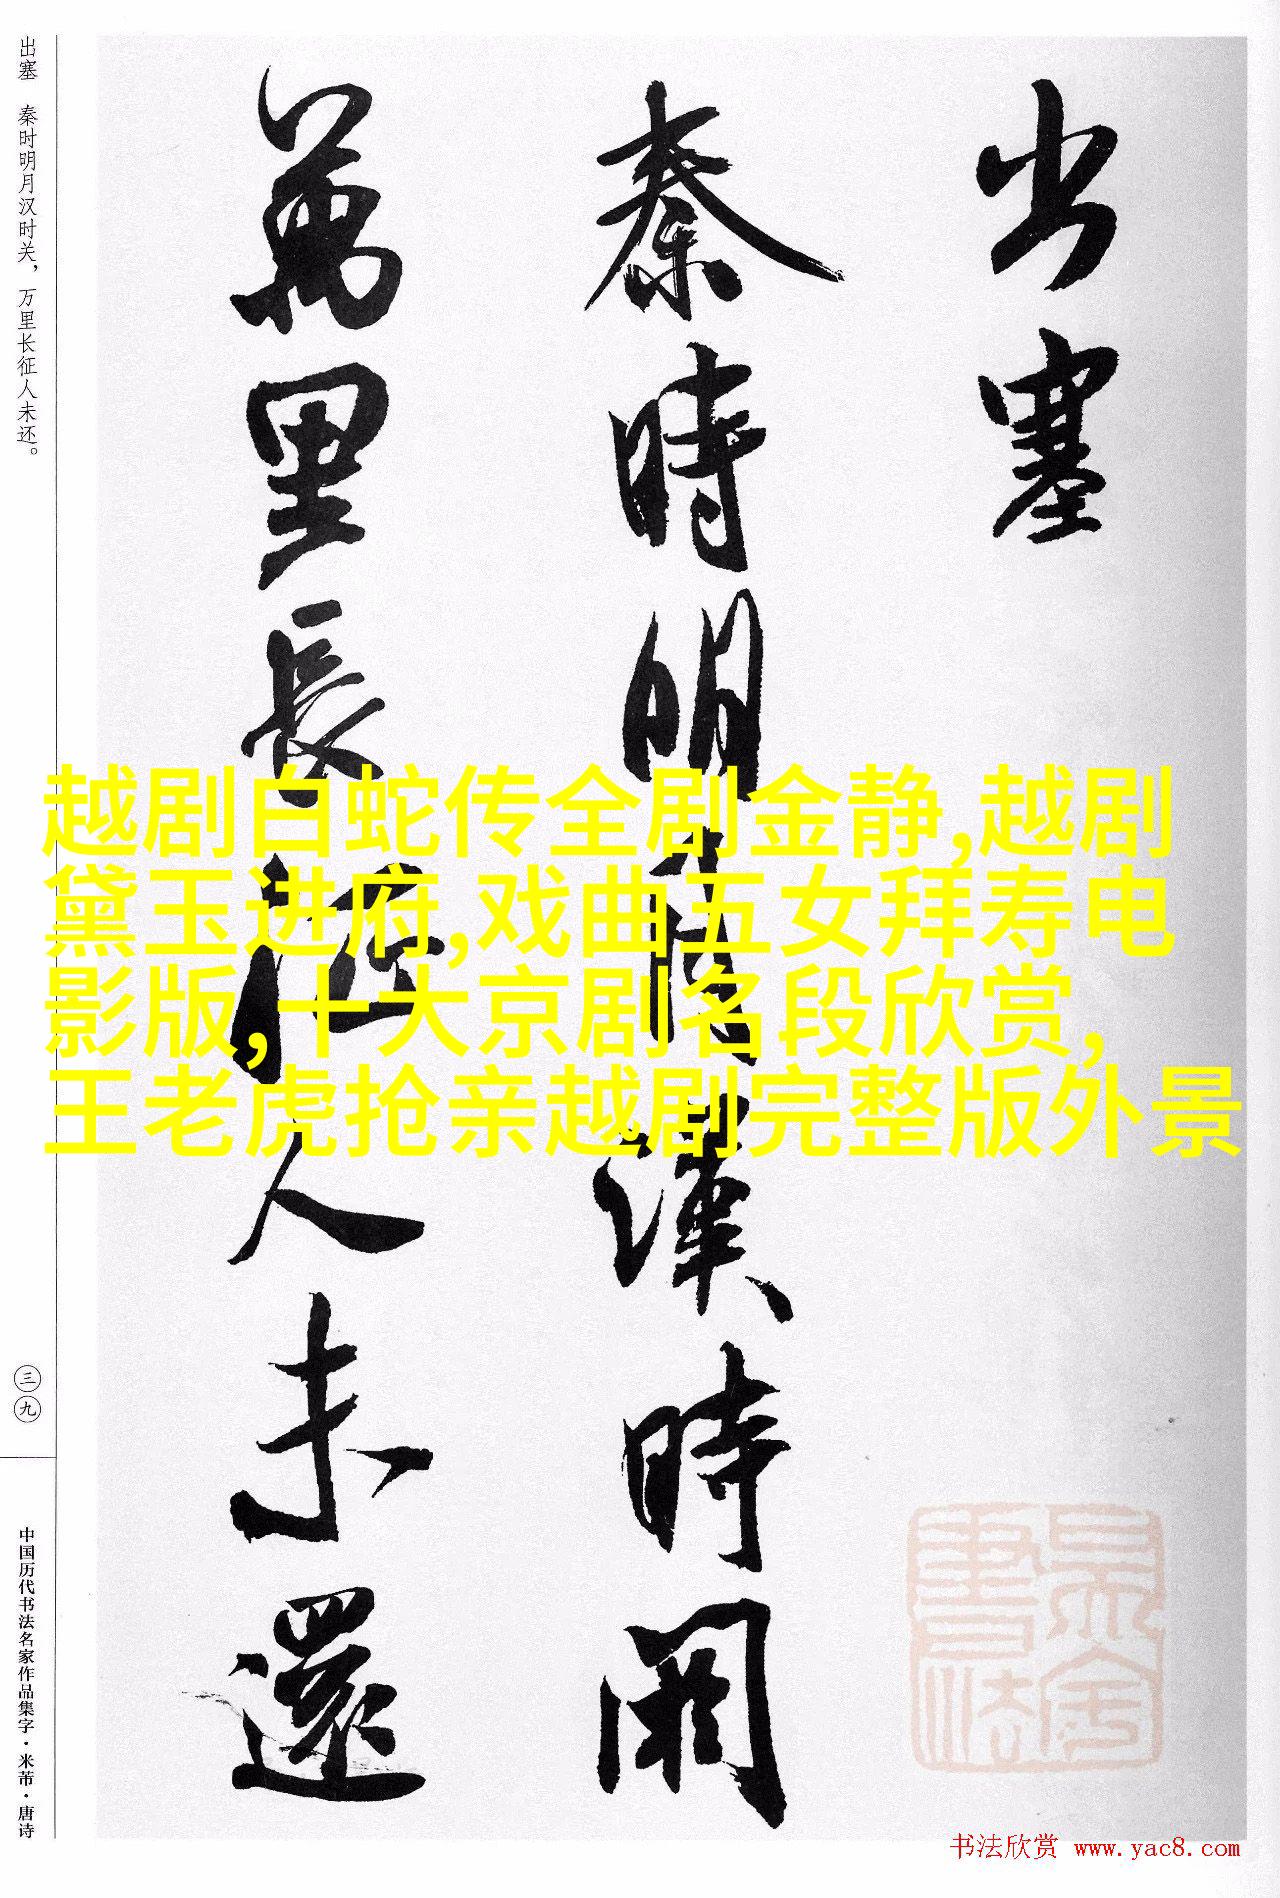 出塞
秦時明月漢時関
萬里長征人未還
出塞 秦时明月汉时关，万里长征人未还。
三九
中国历代书法名家作品集字·米芾·唐诗
越剧白蛇传全剧金静,越剧
黛玉进府,戏曲五女拜寿电
影版,十大京剧名段欣赏,
王老虎抢亲越剧完整版外景
书法欣赏 www.yac8.com